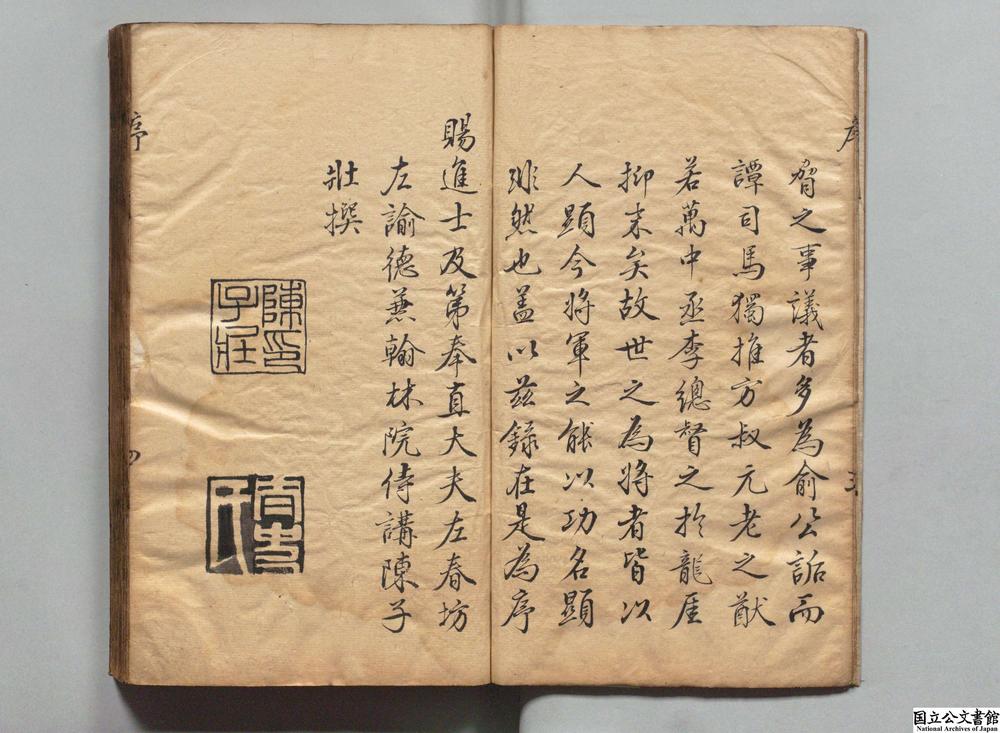 序
三
胥之事議者多為俞公詬而
譚司馬獨推方叔元老之猷
若萬中丞李總督之於龍厓
抑末矣故世之為將者皆以
人顯今將軍之能以功名顯
非然也盖以茲錄在是為序
賜進士及第奉直大夫左春坊
左諭德蒹翰林院侍講陳子
壯撰
陳印
子壯
序
四
国立公文書館
National Archives of Japan